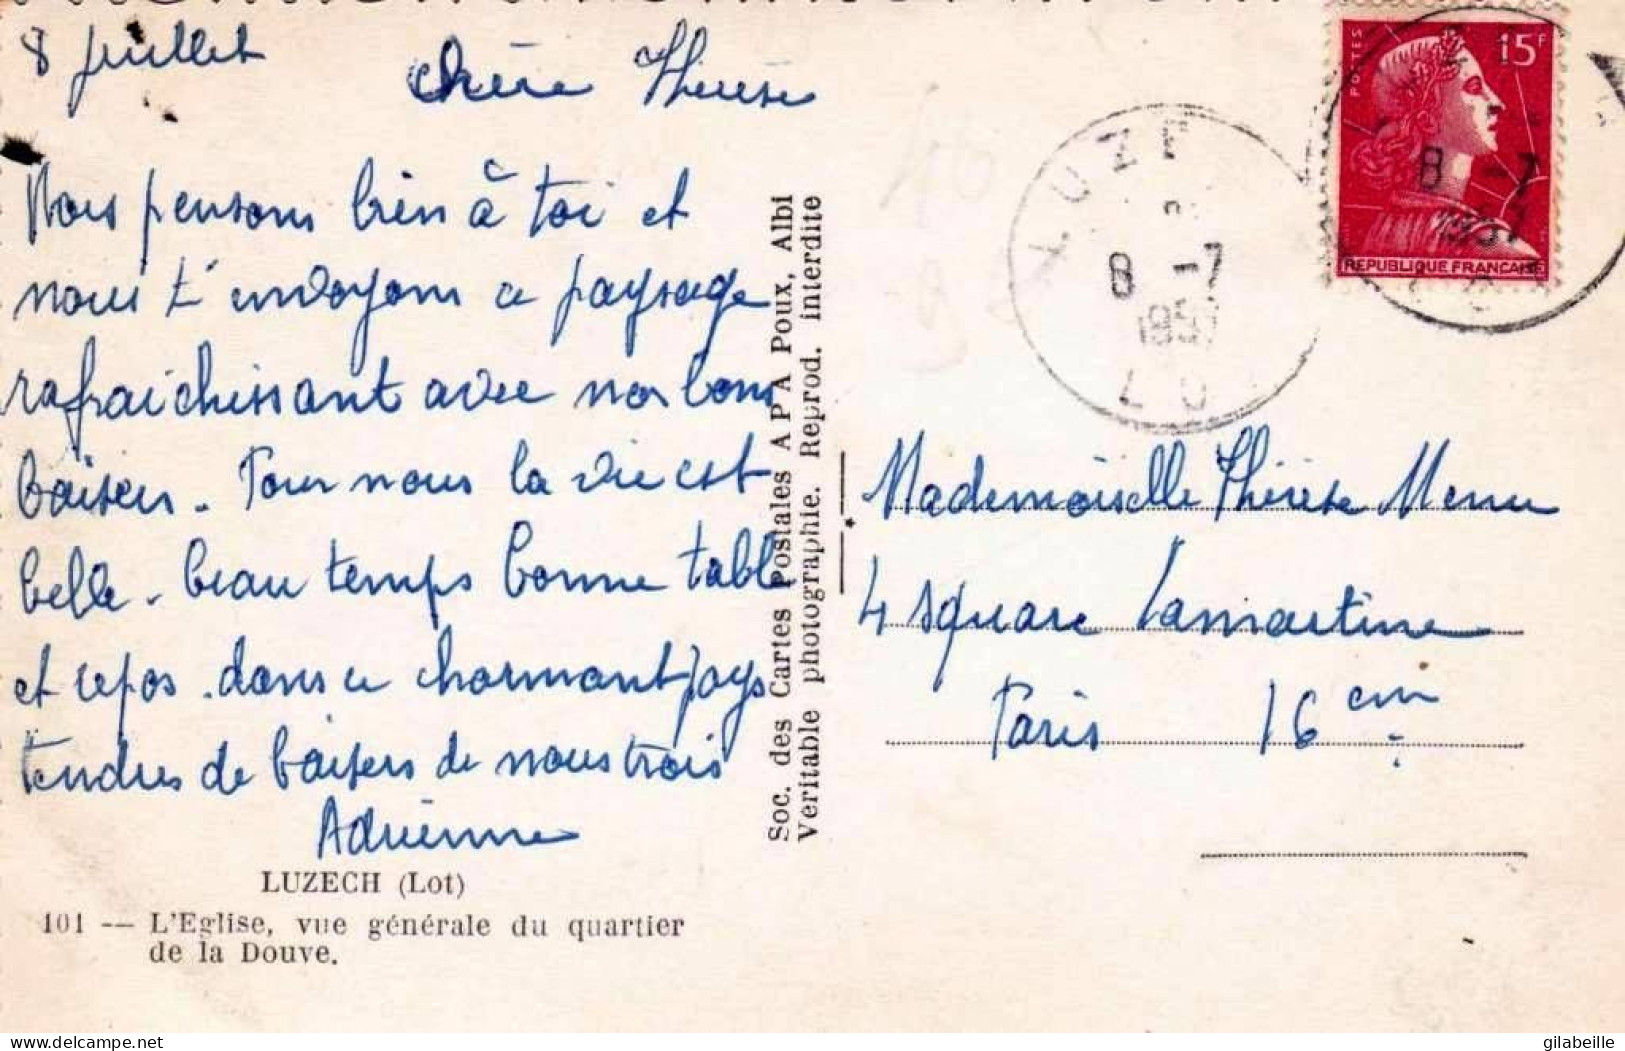 8 juillet
Chère Thérèse
Nous pensons bien à toi et
nous t'envoyons ce paysage
rafraichissant avec nos bons
baisers. Pour nous la vie est
belle. beau temps bonne table
et repos. dans ce charmant pays
tendres de baisers de nous trois
Adrienne
LUZECH (Lot)
101 — L'Eglise, vue générale du quartier
de la Douve.
Soc. des Cartes Postales A P A Poux, Albi
Veritable photographie. Reprod. interdite
LUZE
8 -7
1957
LOT
POSTES
15F
8 -7
1957
REPUBLIQUE FRANCAISE
Mademoiselle Thérèse Menu
4 square Lamartine
Paris 16em
delcampe.net
gilabeille